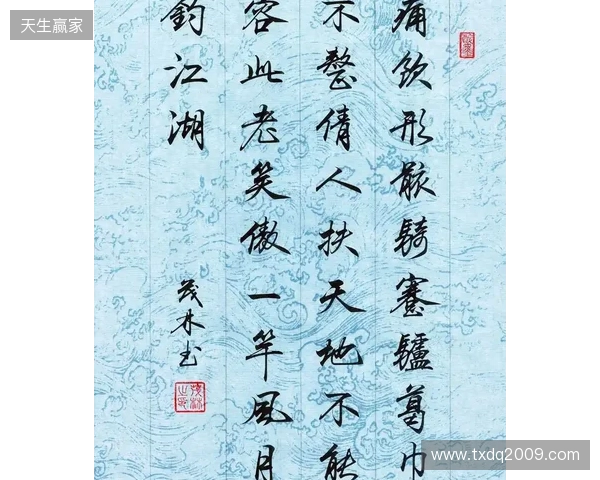 天生赢家
痛飲形骸騎蹇驢葛巾
不整倩人扶天地不能
容此老笑傲一竿風月
釣江湖
茂林书
www.txdq2009.com